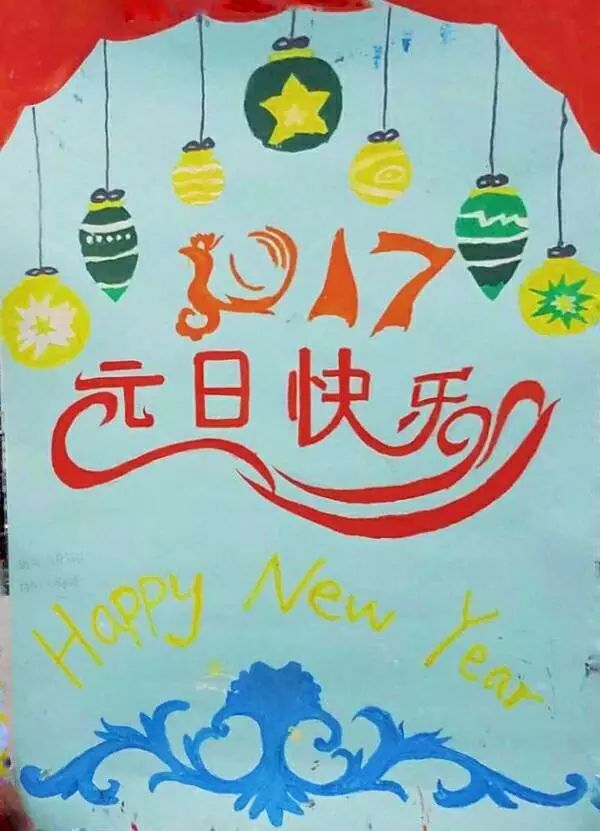 2017
元旦快乐
Happy New Year